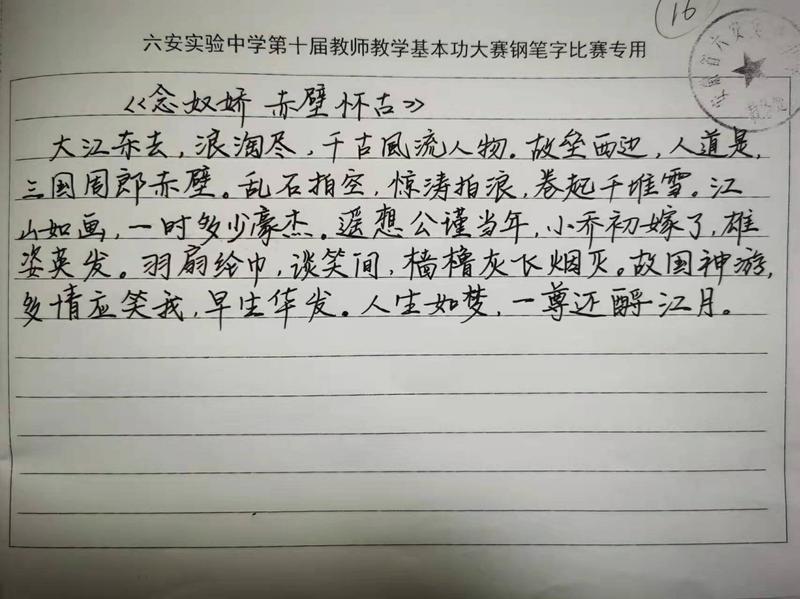 16
六安实验中学第十届教师教学基本功大赛钢笔字比赛专用
《念奴娇 赤壁怀古》
大江东去，浪淘尽，千古风流人物。故垒西边，人道是，
三国周郎赤壁。乱石拍空，惊涛拍浪，卷起千堆雪。江
山如画，一时多少豪杰。遥想公谨当年，小乔初嫁了，雄
姿英发。羽扇纶巾，谈笑间，樯橹灰飞烟灭。故国神游，
多情应笑我，早生华发。人生如梦，一尊还酹江月。